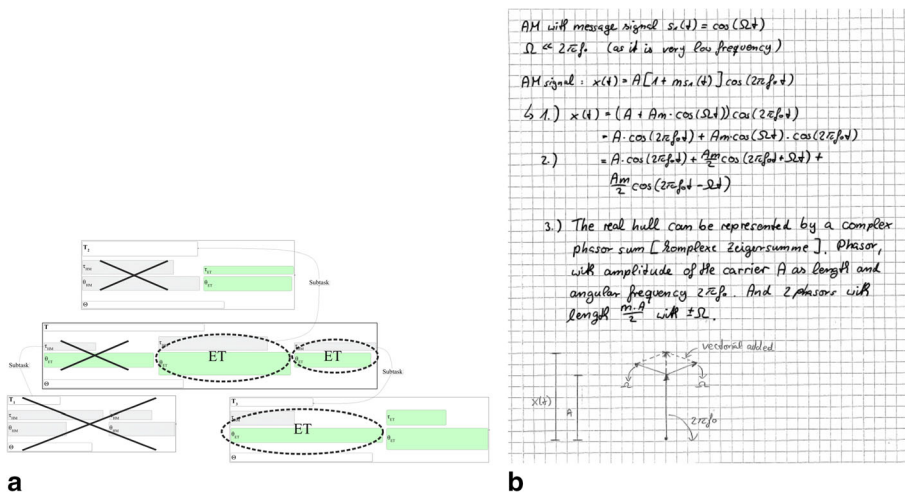 T₂
τ_HM
θ_HM
τ_ET
θ_ET
Θ
Subtask
T
τ_HM
θ_ET
ET
θ_ET
ET
θ_ET
Θ
Subtask
Subtask
T₁
τ_HM
τ_HM
θ_HM
θ_HM
Θ
θ_ET
ET
τ_ET
θ_ET
Θ
a
AM with message signal s₁(t) = cos(Ωt)
Ω << 2πf₀ (as it is very low frequency)
AM signal: x(t) = A[1 + ms₁(t)] cos(2πf₀t)
↳ 1.) x(t) = (A + Am · cos(Ωt)) cos(2πf₀t)
= A · cos(2πf₀t) + Am·cos(Ωt) · cos(2πf₀t)
2.) = A · cos(2πf₀t) + Am/2 cos(2πf₀t + Ωt) +
Am/2 cos(2πf₀t - Ωt)
3.) The real hull can be represented by a complex
phasor sum [komplexe Zeigersumme]. Phasor,
with amplitude of the carrier A as length and
angular frequency 2πf₀. And 2 phasors with
length m·A/2 with ±Ω.
vectorial added
Ω
Ω
X(t)
A
2πf₀
b